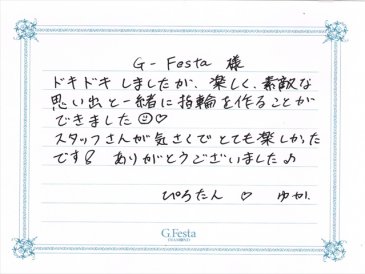 G-Festa 様
ドキドキしましたが、楽しく、素敵な
思い出と一緒に指輪を作ることが
できました☺♡
スタッフさんが気さくでとても楽しかった
です♪ ありがとうございました♪
ぴろたん ♡ ゆか.
G.Festa
DIAMOND